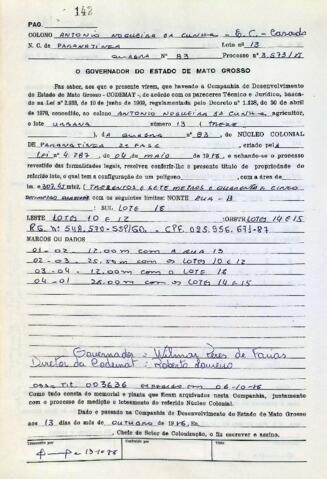 PAG. 142
COLONO ANTONIO NOGUEIRA DA CUNHA - E.C. - Casado
N. C. de PARANATINGA Lote nº 13
QUADRA Nº 83 Processo nº 3.573/18
O GOVERNADOR DO ESTADO DE MATO GROSSO
Faz saber, aos que o presente virem, que havendo a Companhia de Desenvolvimento
do Estado de Mato Grosso - CODEMAT -, de acôrdo com os pareceres Técnico e Jurídico, basea-
do na Lei nº 2.938, de 10 de junho de 1969, regulamentada pelo Decreto nº 1.228, de 30 de abril
de 1978, concedido ao colono ANTONIO NOGUEIRA DA CUNHA, agricultor,
o lote URBANO número 13 (TREZE
), DA QUADRA Nº 83, DO NÚCLEO COLONIAL
DE PARANATINGA 2ª FASE, criado pela
Lei nº 4.787, de 04 de maio de 19, e achando-se o processo
revestido das formalidades legais, resolveu conferir-lhe o presente título de propriedade do
referido lote, o qual tem a configuração de um polígono, com a área de
307,45 mts² (TREZENTOS E SETE METROS E QUARENTA E CINCO
com os seguintes limites: NORTE RUA - B
; SUL LOTE 16
LESTE LOTES 10 E 12; OESTE LOTES 14 E 15
RG. Nº 548.570-SSP/GO. - CPF. 025.956.671-87
MARCOS OU DADOS
01 - 02 - 12.00m COM A RUA 13
02 - 03 - COM OS LOTES 10 E 12
03 - 04 - 12.00m COM O LOTE 16
04 - 01 COM OS LOTES 14 E 15
Governador: Wilmar Peres de Farias
Diretor da Codemat: Roberto
TIT. 003636 EM 06-10-86
Como tudo consta do memorial e planta que ficam arquivados nesta Companhia, juntamente
com o processo de medição e loteamento do referido Núcleo Colonial.
Dado e passado na Companhia de Desenvolvimento do Estado de Mato Grosso
aos 13 dias do mês de OUTUBRO de 1986. Eu,
, Chefe do Setor de Colonização, o fiz escrever e assino.
Transcrito por
Conferido por
Visto
13-10-86